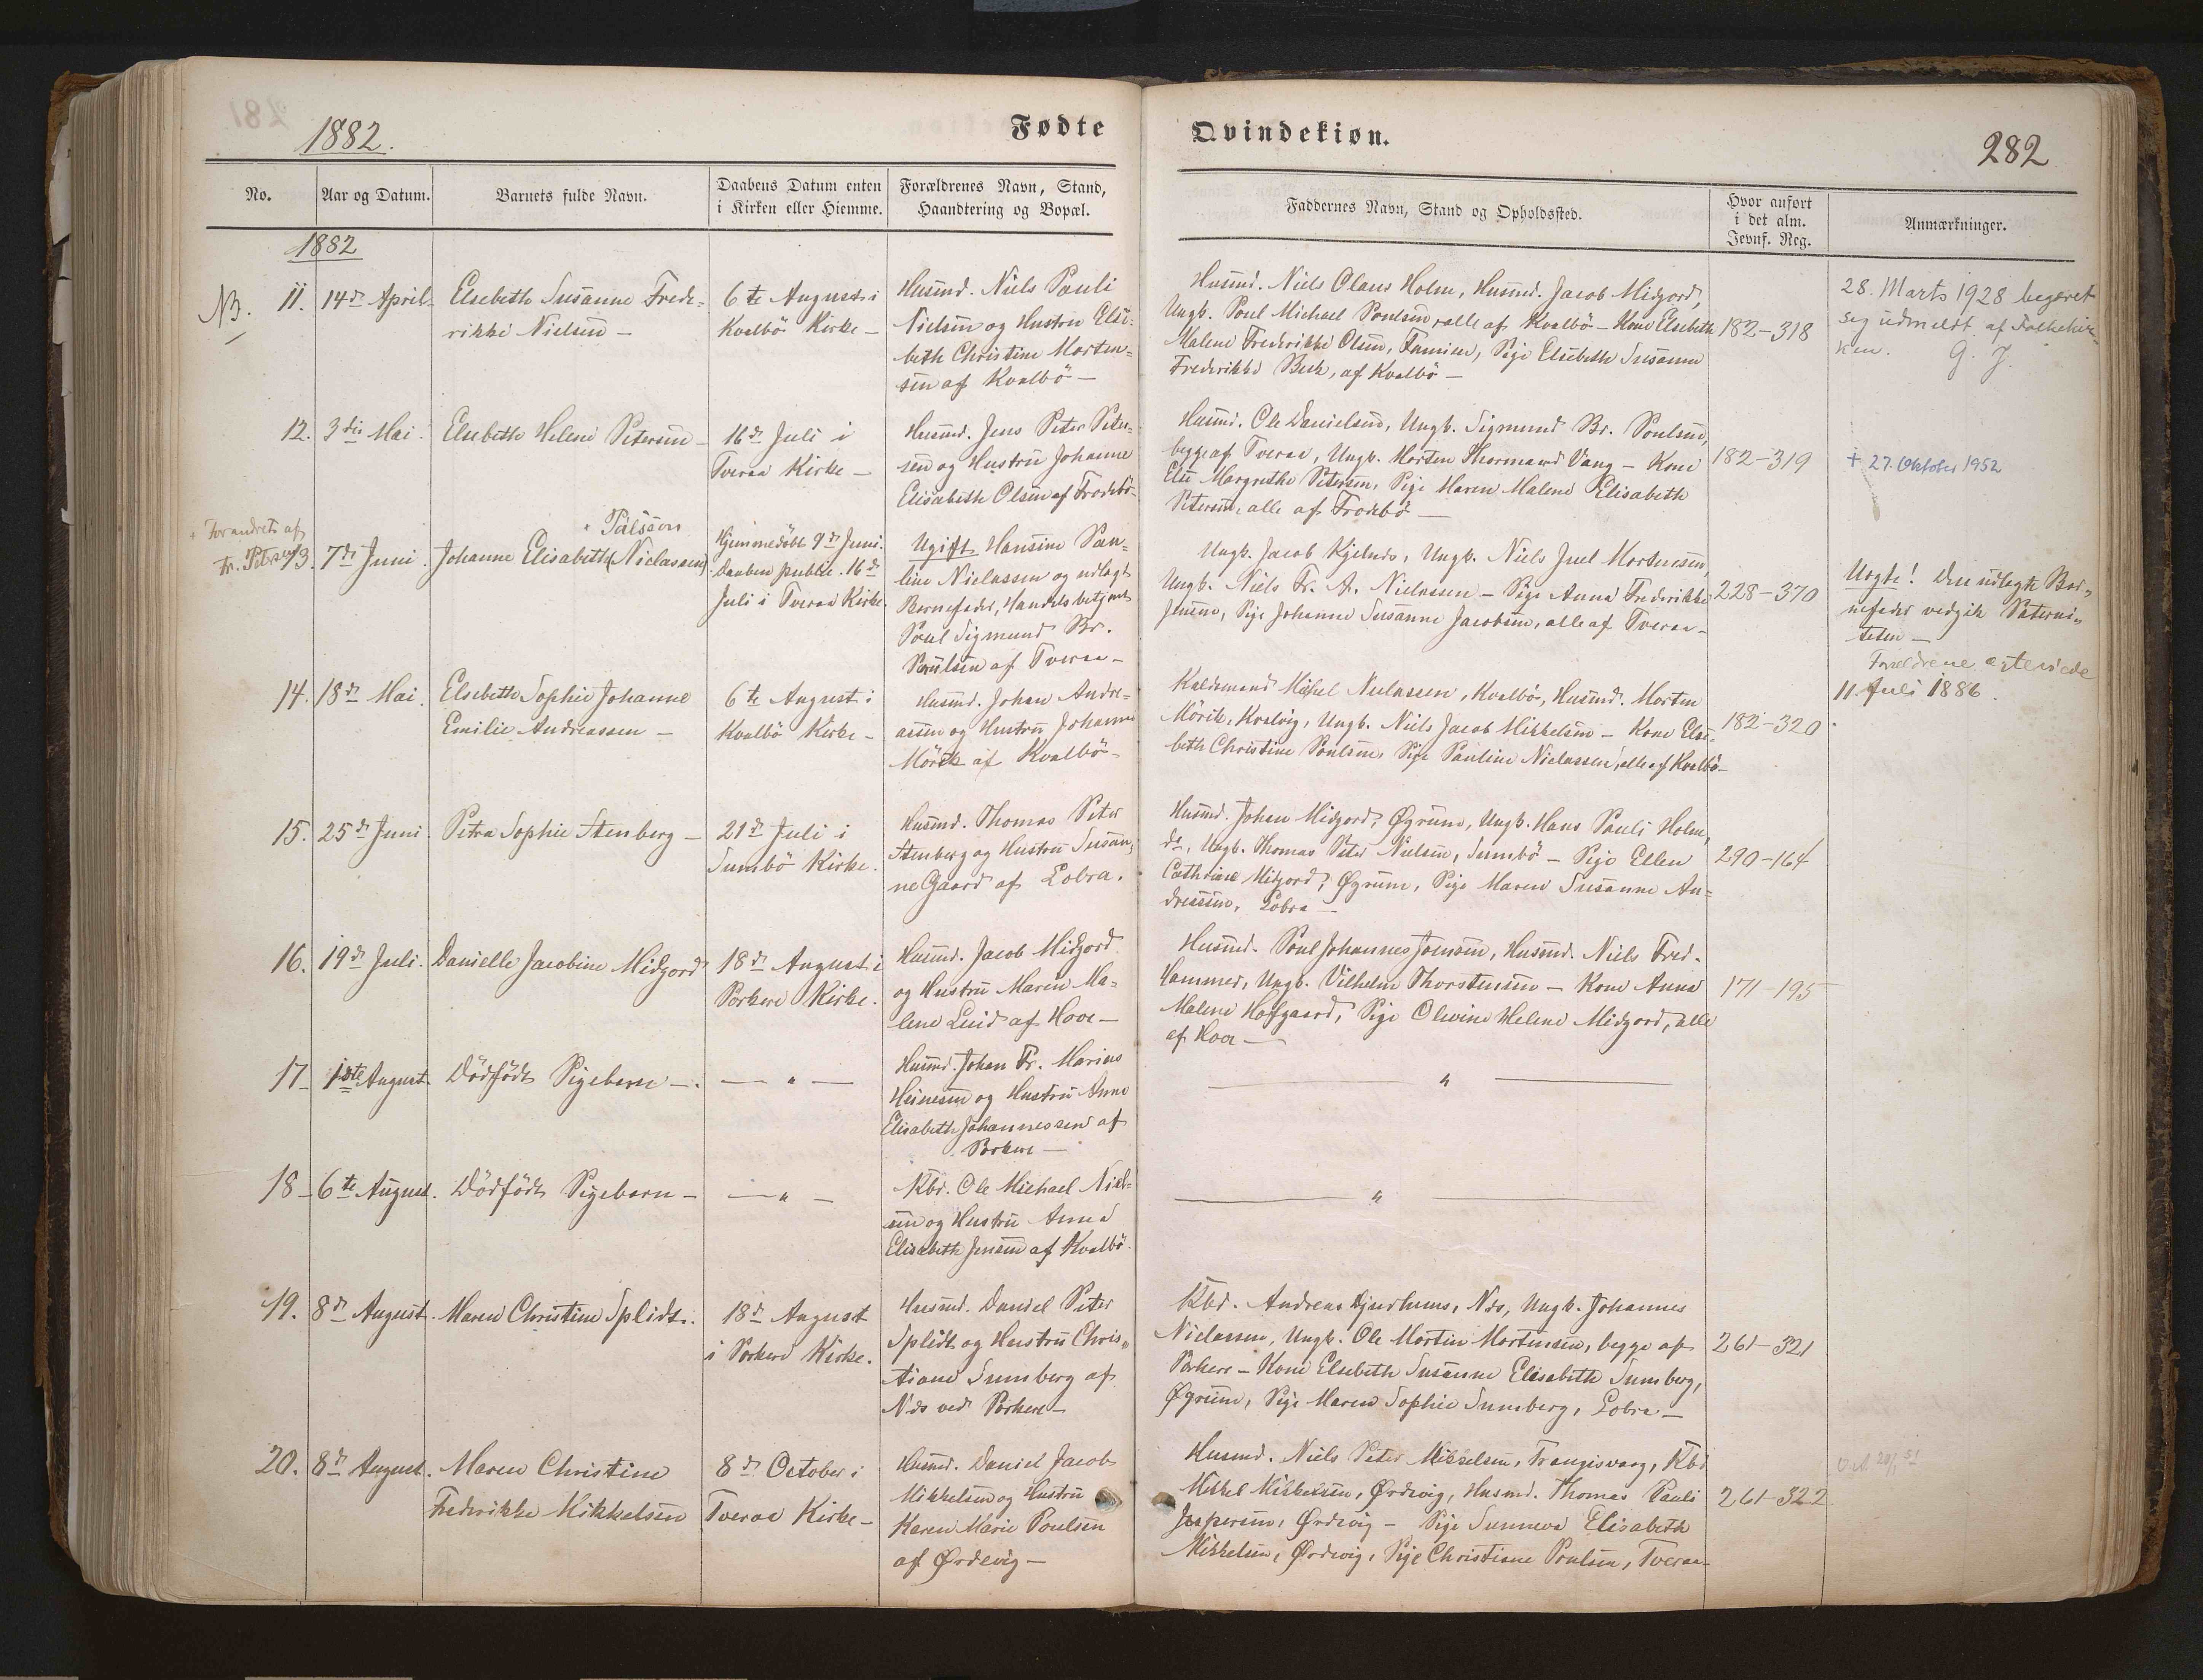 1882.
Fødte
Qvindekiøn.
282
No.
Aar og Datum.
Barnets fulde Navn.
Daabens Datum enten
i Kirken eller Hiemme.
Forældrenes Navn, Stand,
Haandtering og Bopæl.
Faddernes Navn, Stand og Opholdssted.
Hvor anført
i det alm.
Jevnf. Reg.
Anmærkninger.
1882
NB.
11.
14de April
Elsebeth Susanne Frede-
rikke Nielsen -
6te August i
Kvalbö Kirke -
Husmd. Niels Pauli
Nielsen og Hustru Else-
beth Christine Morten-
sen af Kvalbö -
Husmd. Niels Olaus Holm, Husmd. Jacob Midjord,
Ungk. Poul Michael Poulsen, alle af Kvalbö - Kone Elsebeth
Malene Frederikke Olsen, Famien, Pige Elsebeth Susanne
Frederikke Beck, af Kvalbö -
182-318
28. Marts 1928 begæret
sig udmeldt af Folkekir-
ken. G. J.
12.
3die Mai.
Elsebeth Helene Petersen -
16de Juli i
Tveraa Kirke -
Husmd. Jens Peter Peter-
sen og Hustru Johanne
Elisabeth Olsen af Frodebö
Husmd. Ole Danielsen, Ungk. Sigmund Br. Poulsen,
begge af Tveraa, Ungk. Morten Thormand Vang - Kone
Else Margrethe Petersen, Pige Maren Malene Elisabeth
Petersen, alle af Frodebö -
182-319
+ 27. Oktober 1952
+ Forandret af
Fr. Petersen
13.
7de Juni.
+ Pálsson
Johanne Elisabeth (Niclassen)
Hjemmedöbt 9de Juni.
Daaben public. 16de
Juli i Tveraa Kirke.
Ugift Hansine Pau-
line Niclassen og udlagt
Barnefader, Handelsbetjent
Poul Sigmund Br.
Poulsen af Tveraa -
Ungk. Jacob Kjelnæs, Ungk. Niels Juel Mortensen,
Ungk. Niels Fr. A. Niclassen - Pige Anna Frederikke
Jensen, Pige Johanne Susanne Jacobsen, alle af Tveraa -
228-370
Uægte! Den udlagte Bar-
nefader vedgik Paterni-
teten -
Forældrene ægteviede
11. Juli 1886.
14.
18de Mai.
Elsebeth Sophie Johanne
Emilie Andreassen -
6te August i
Kvalbö Kirke -
Husmd. Johan Andre-
assen og Hustru Johanne
Mörck af Kvalbö -
Niclassen, Kvalbö, Husmd. Morten
Mörck, Kvalvig, Ungk. Niels Jacob Mikkelsen - Kone Else-
beth Christine Poulsen, Pige Pauline Niclassen, alle af Kvalbö -
182-320
15.
25de Juni.
Petra Sophie Stenberg -
21de Juli i
Sumbö Kirke.
Husmd. Thomas Peter
Stenberg og Hustru Susan-
ne Gaard af Lobra.
Husmd. Johan Midjord, Øgrum, Ungk. Hans Pauli Holm,
do, Ungk. Thomas Peter Nielsen, Sumbö - Pige Ellen
Cathrine Midjord, Øgrum, Pige Maren Susanne An-
dreasen, Lobra -
290-164
16.
19de Juli.
Danielle Jacobine Midjord
18de August i
Porkere Kirke.
Husmd. Jacob Midjord
og Hustru Maren Ma-
lene Luid af Hove -
Husmd. Poul Johannes Joensen, Husmd. Niels Fred.
Hammer, Ungk. Vilhelm Thorstensen - Kone Anna
Malene Hofgaard, Pige Olevine Helene Midjord, alle
af Hove -
171-195
17 -
1ste August
Dödfödt Pigebarn -
- " -
Husmd. Johan Fr. Marius
Heinesen og Hustru Anne
Elisabeth Johannessen af
Porkere -
- " -
18 -
6te August.
Dödfödt Pigebarn -
- " -
Kbd. Ole Michael Niel-
sen og Hustru Anna
Elisabeth Jensen af Kvalbö.
- " -
19.
8de August.
Maren Christine Splidt.
18de August
i Porkere Kirke.
Husmd. Daniel Peter
Splidt og Hustru Chris-
tiane Sumberg af
Næs ved Porkere -
Kbd. Andreas Djurhuus, Næs, Ungk. Johannes
Niclassen, Ungk. Ole Martin Mortensen, begge af
Porkere - Kone Elsebeth Susanne Elisabeth Sumberg,
Øgrum, Pige Maren Sophie Sumberg, Lobra -
261-321
20.
8de August.
Maren Christine
Frederikke Mikkelsen
8de October i
Tveraa Kirke -
Husmd. Daniel Jacob
Mikkelsen og Hustru
Karen Marie Poulsen
af Ørdevig -
Husmd. Niels Peter Mikkelsen, Trangisvaag, Kbd
Mikkel Mikkelsen, Ørdevig, Husmd. Thomas Pauli
Jespersen, Ørdevig - Pige Sunneva Elisabeth
Mikkelsen, Ørdevig, Pige Christiane Poulsen, Tveraa -
261-322